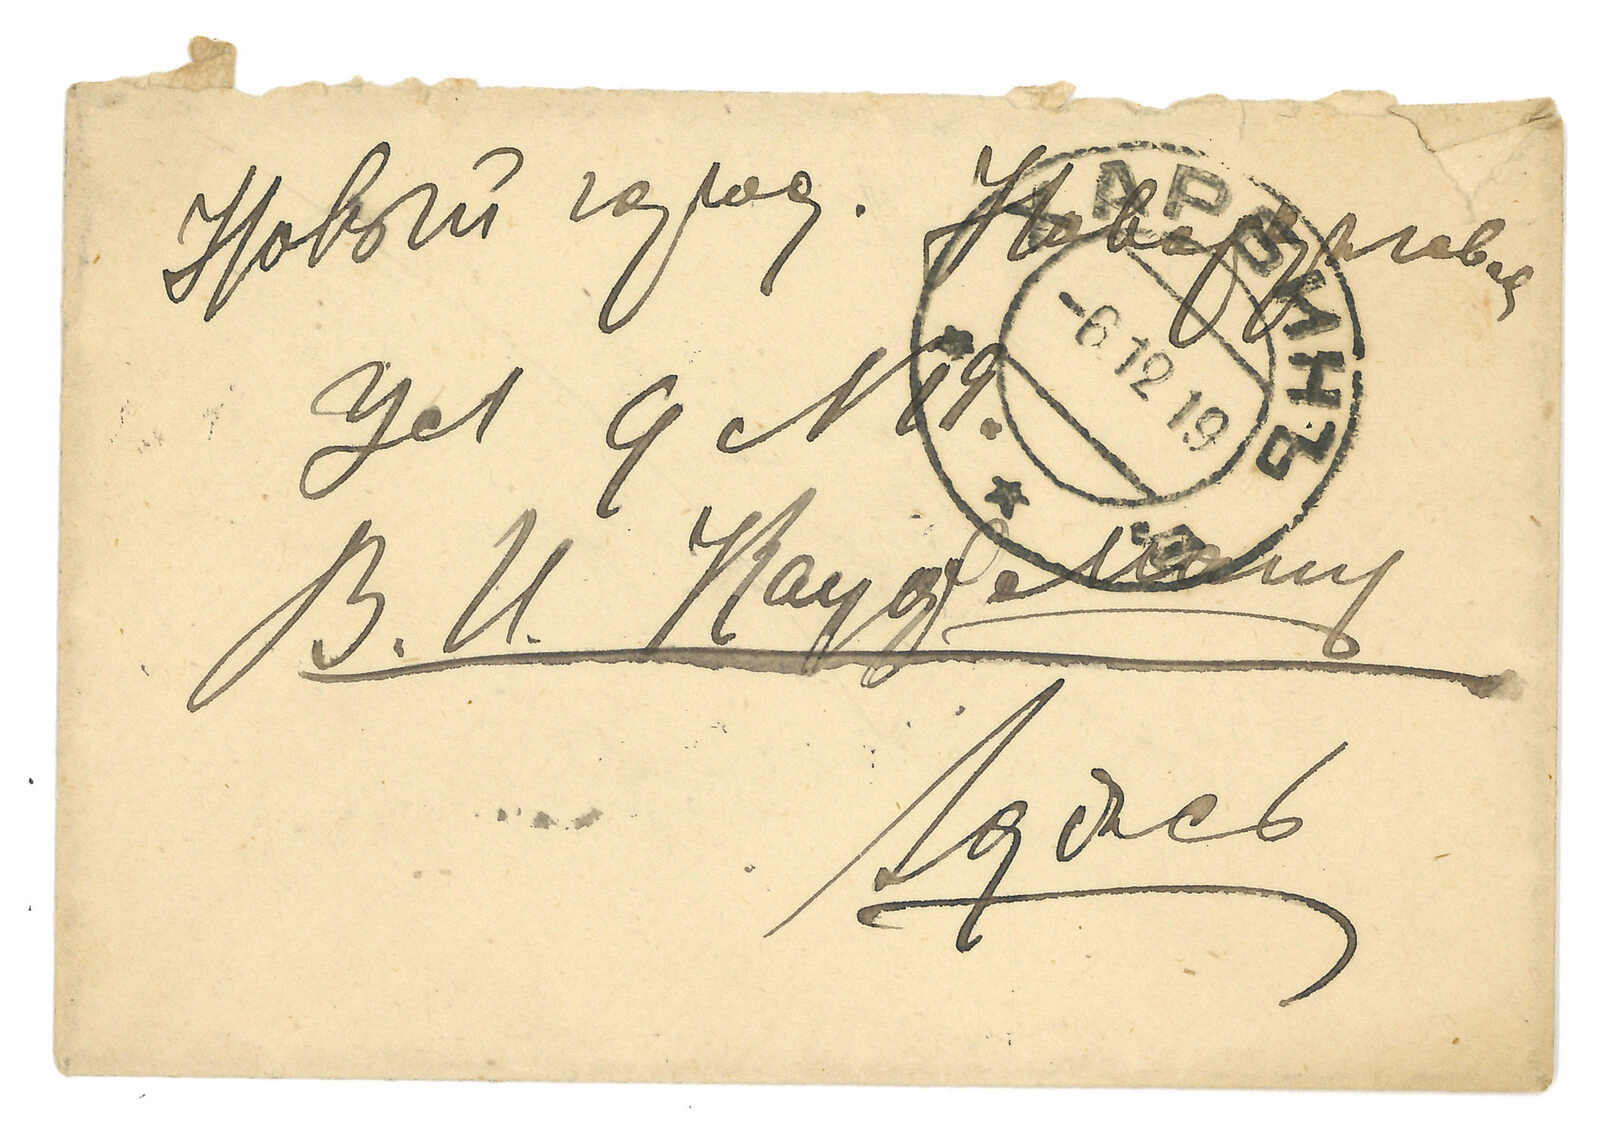 Новый город. Новоторговая
Ул д № 19.
В. И. Кауфману
Здѣсь
ХАРБИНЪ
-6 12 19